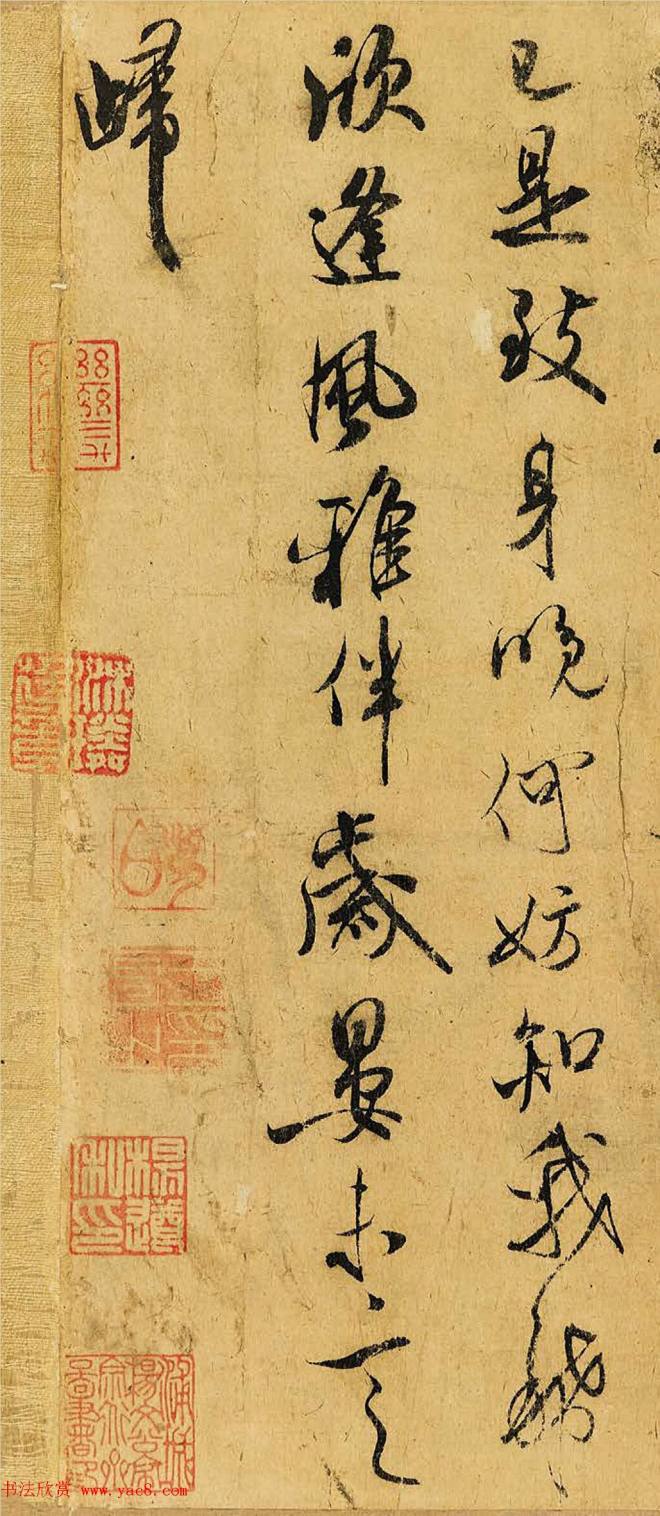 已是致身晚何妨知我稀
欣逢風雅伴歲晏未言
歸
楊遵私印
书法欣赏 www.yac8.com